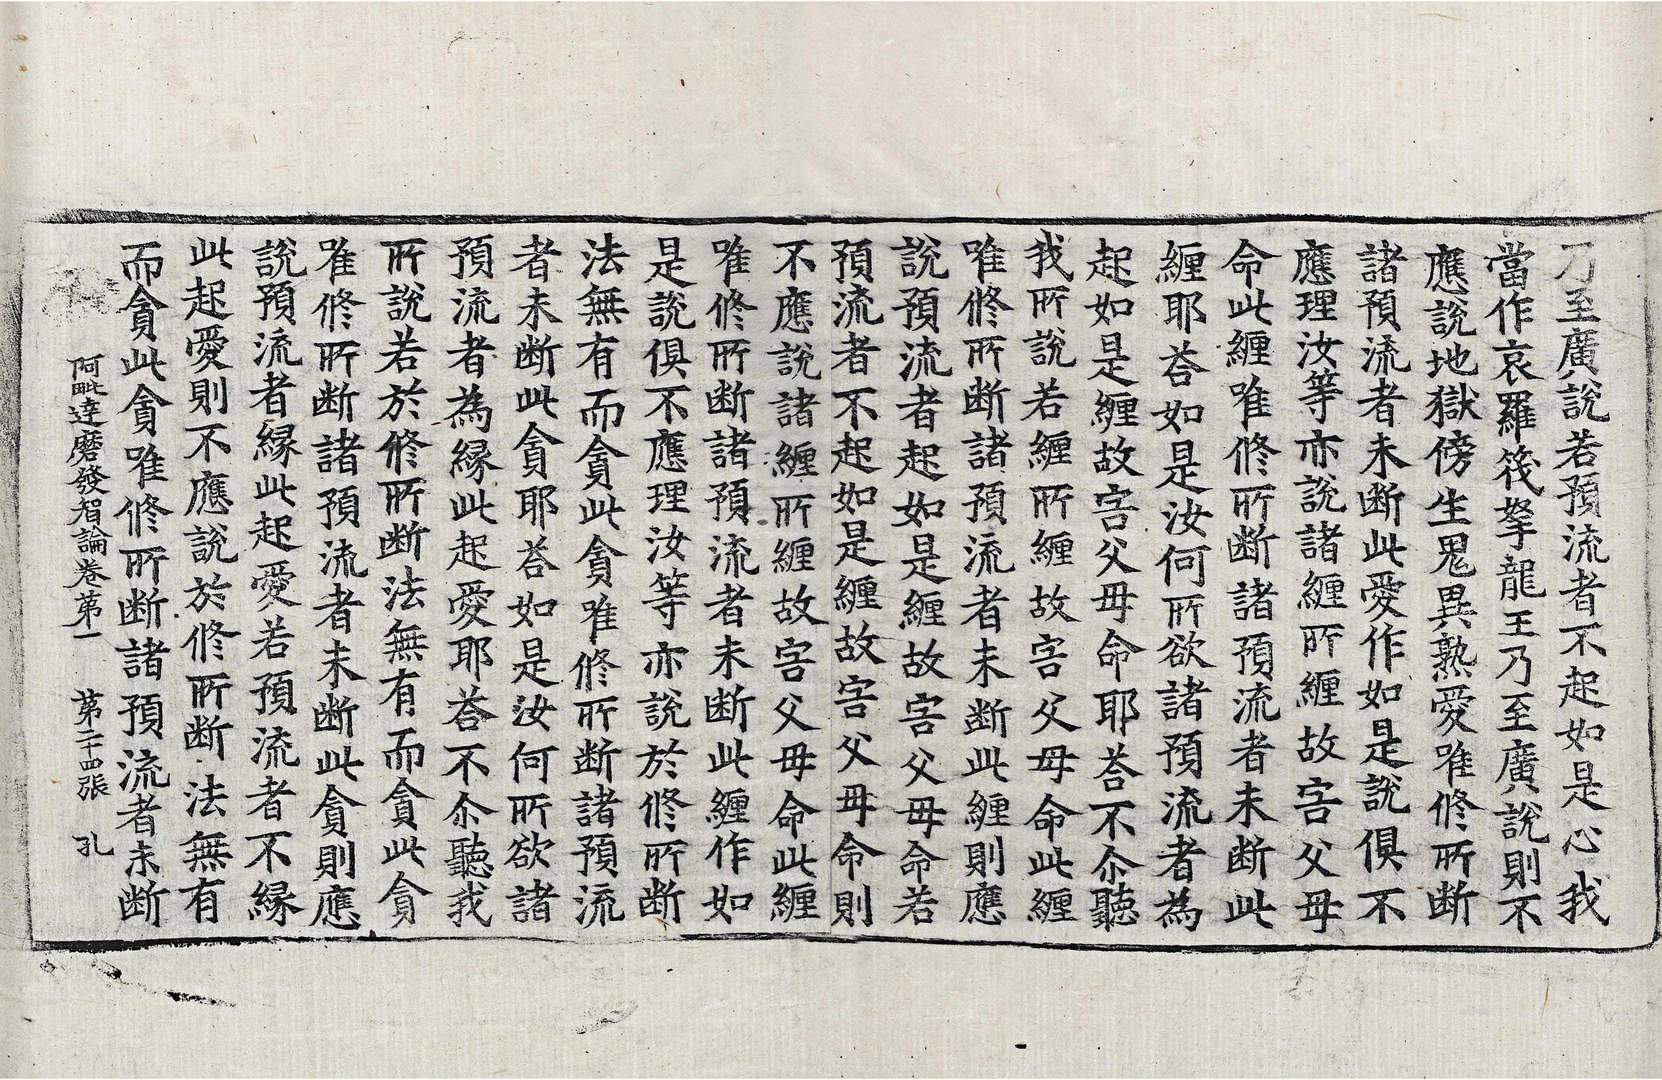 乃至廣說若預流者不起如是心我
當作哀羅筏拏龍王乃至廣說則不
應說地獄傍生鬼異熟愛唯修所斷
諸預流者未断此愛作如是說俱不
應理汝等亦說諸纏所纏故害父母
命此纏唯修所断諸預流者未断此
纏耶荅如是汝何所欲諸預流者為
起如是纏故害父母命耶荅不尒聽
我所說若纏所纏故害父母命此纏
唯修所断諸預流者未断此纏則應
說預流者起如是纏故害父母命若
預流者不起如是纏故害父母命則
不應說諸纏所纏故害父母命此纏
唯修所断諸預流者未断此纏作如
是說俱不應理汝等亦說於修所断
法無有而貪此貪唯修所断諸預流
者未断此貪耶荅如是汝何所欲諸
預流者為緣此起愛耶荅不尒聽我
所說若於修所断法無有而貪此貪
唯修所断諸預流者未断此貪則應
說預流者緣此起愛若預流者不緣
此起愛則不應說於修所断法無有
而貪此貪唯修所断諸預流者未断
阿毗達磨發智論卷第一 第二十四張 孔